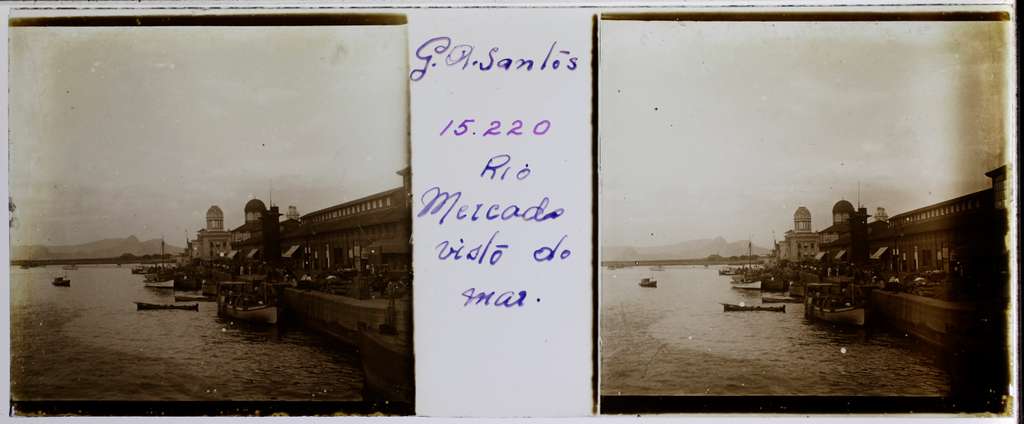 G. A. Santos
15.220
Rio
Mercado
visto do
mar.